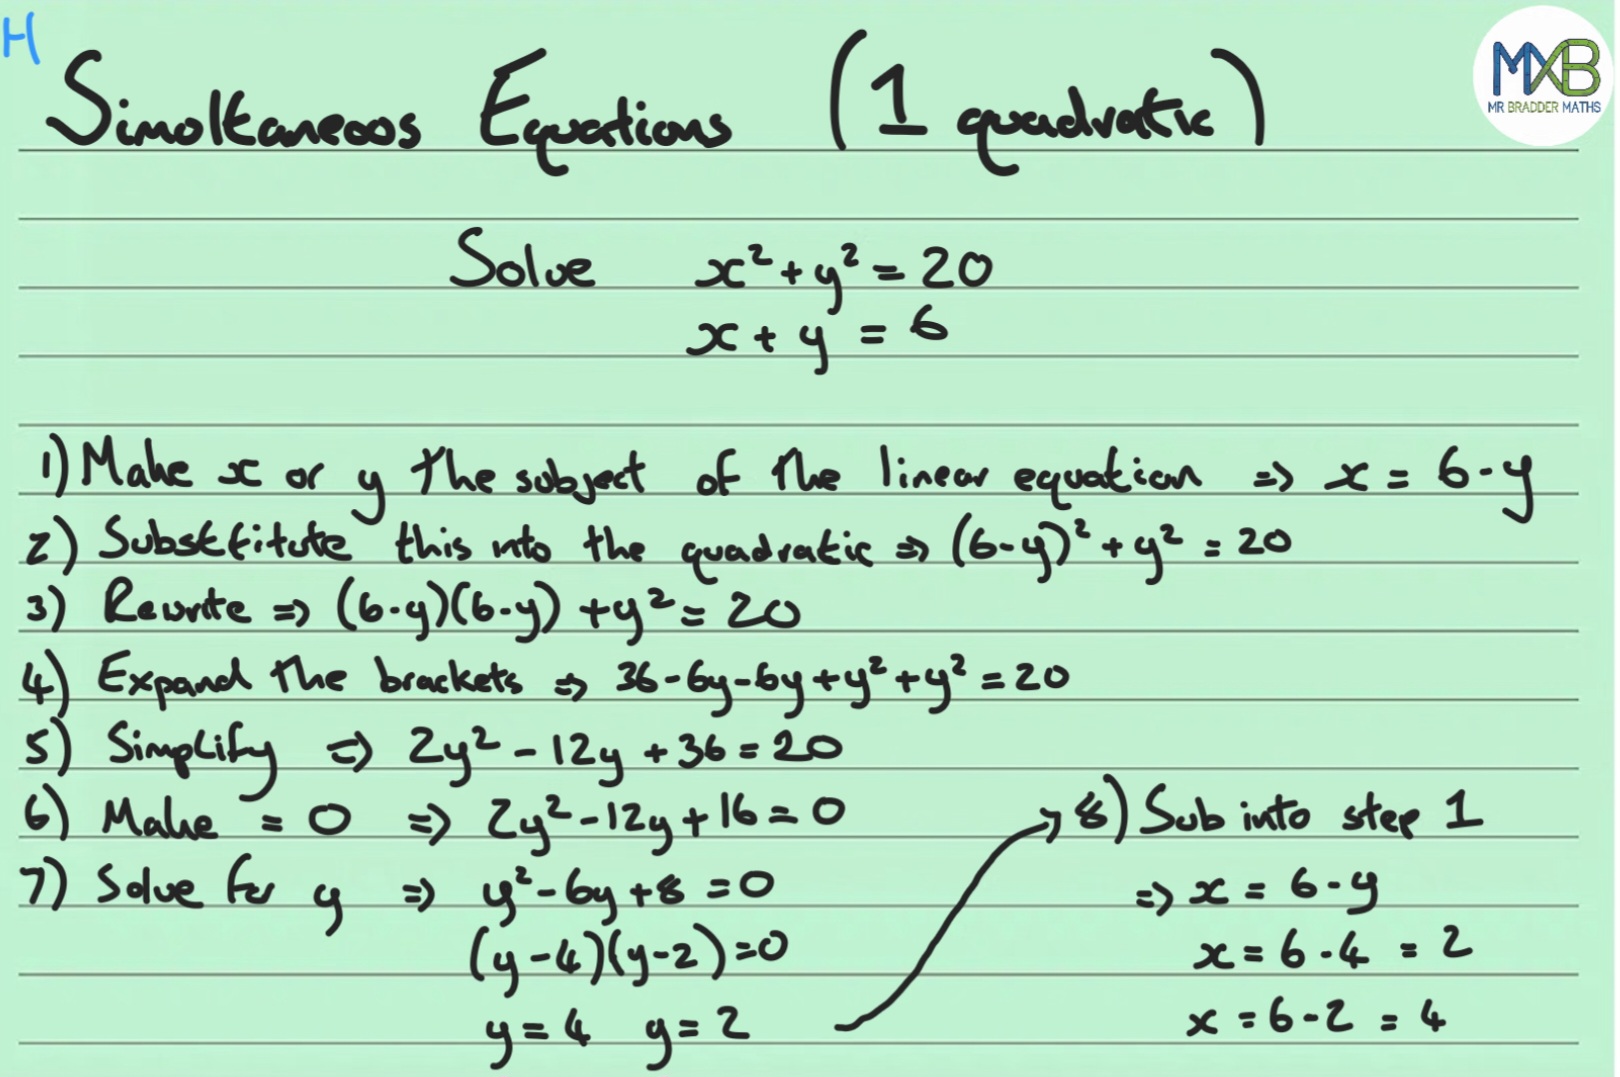 H
Simultaneous Equations (1 quadratic)
MXB
MR BRADDER MATHS
Solve x² + y² = 20
x + y = 6
1) Make x or y the subject of the linear equation => x = 6 - y
2) Substitute this into the quadratic => (6-y)² + y² = 20
3) Rewrite => (6-y)(6-y) + y² = 20
4) Expand the brackets => 36 - 6y - 6y + y² + y² = 20
5) Simplify => 2y² - 12y + 36 = 20
6) Make = 0 => 2y² - 12y + 16 = 0
7) Solve for y => y² - 6y + 8 = 0
(y - 4)(y - 2) = 0
y = 4 y = 2
8) Sub into step 1
=> x = 6 - y
x = 6 - 4 = 2
x = 6 - 2 = 4